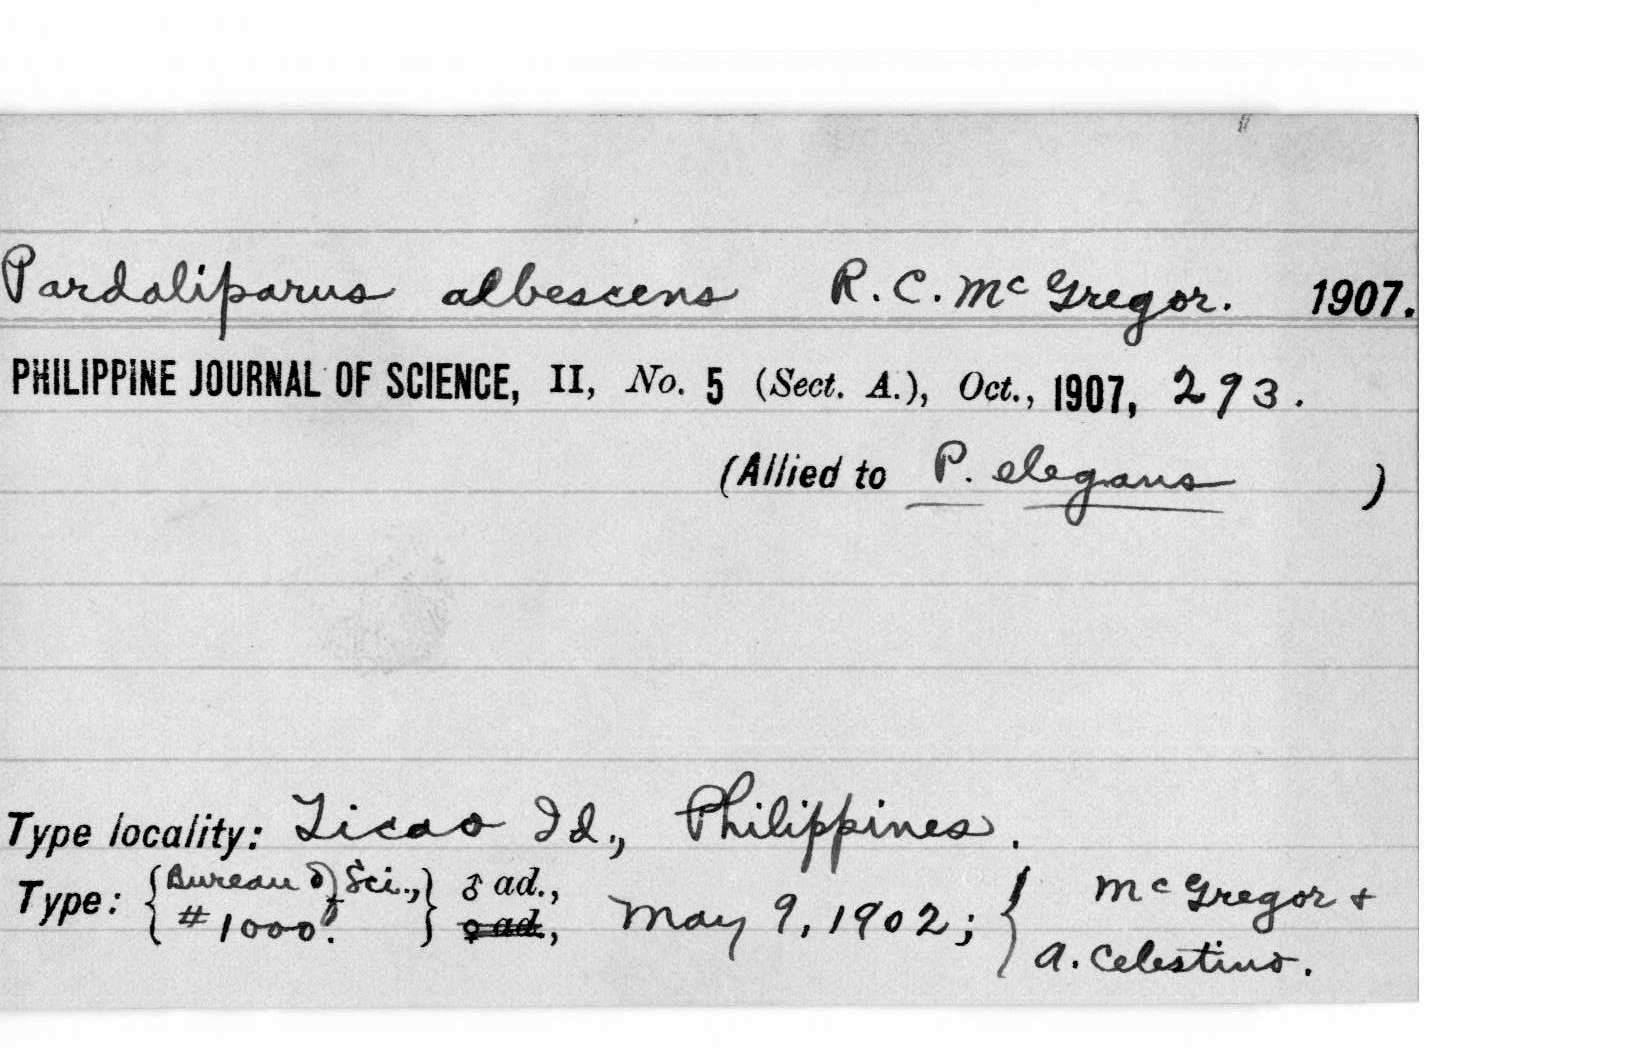 Pardaliparus albescens R. C. McGregor. 1907.
PHILIPPINE JOURNAL OF SCIENCE, II, No. 5 (Sect. A.), Oct., 1907, 293.
(Allied to P. elegans )
Type locality: Ticao Id., Philippines.
Type: { Bureau of Sci., } ♂ ad.,
# 1000. ♀ ad., May 9, 1902; { McGregor +
A. Celestino.